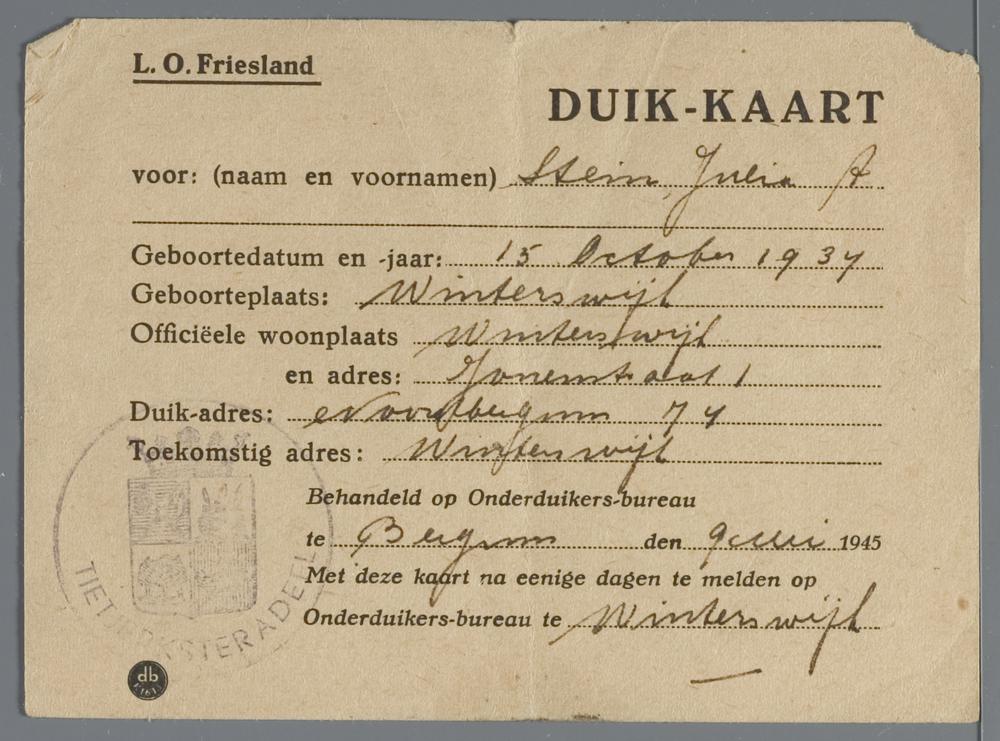 L. O. Friesland
DUIK-KAART
voor: (naam en voornamen) Stein, Julia A
Geboortedatum en -jaar: 15 October 1934
Geboorteplaats: Winterswijk
Officiëele woonplaats Winterswijk
en adres: 1
Duik-adres: Noordbergum 74
Toekomstig adres: Winterswijk
Behandeld op Onderduikers-bureau
te Bergum den 9 Mei 1945
Met deze kaart na eenige dagen te melden op
Onderduikers-bureau te Winterswijk
db